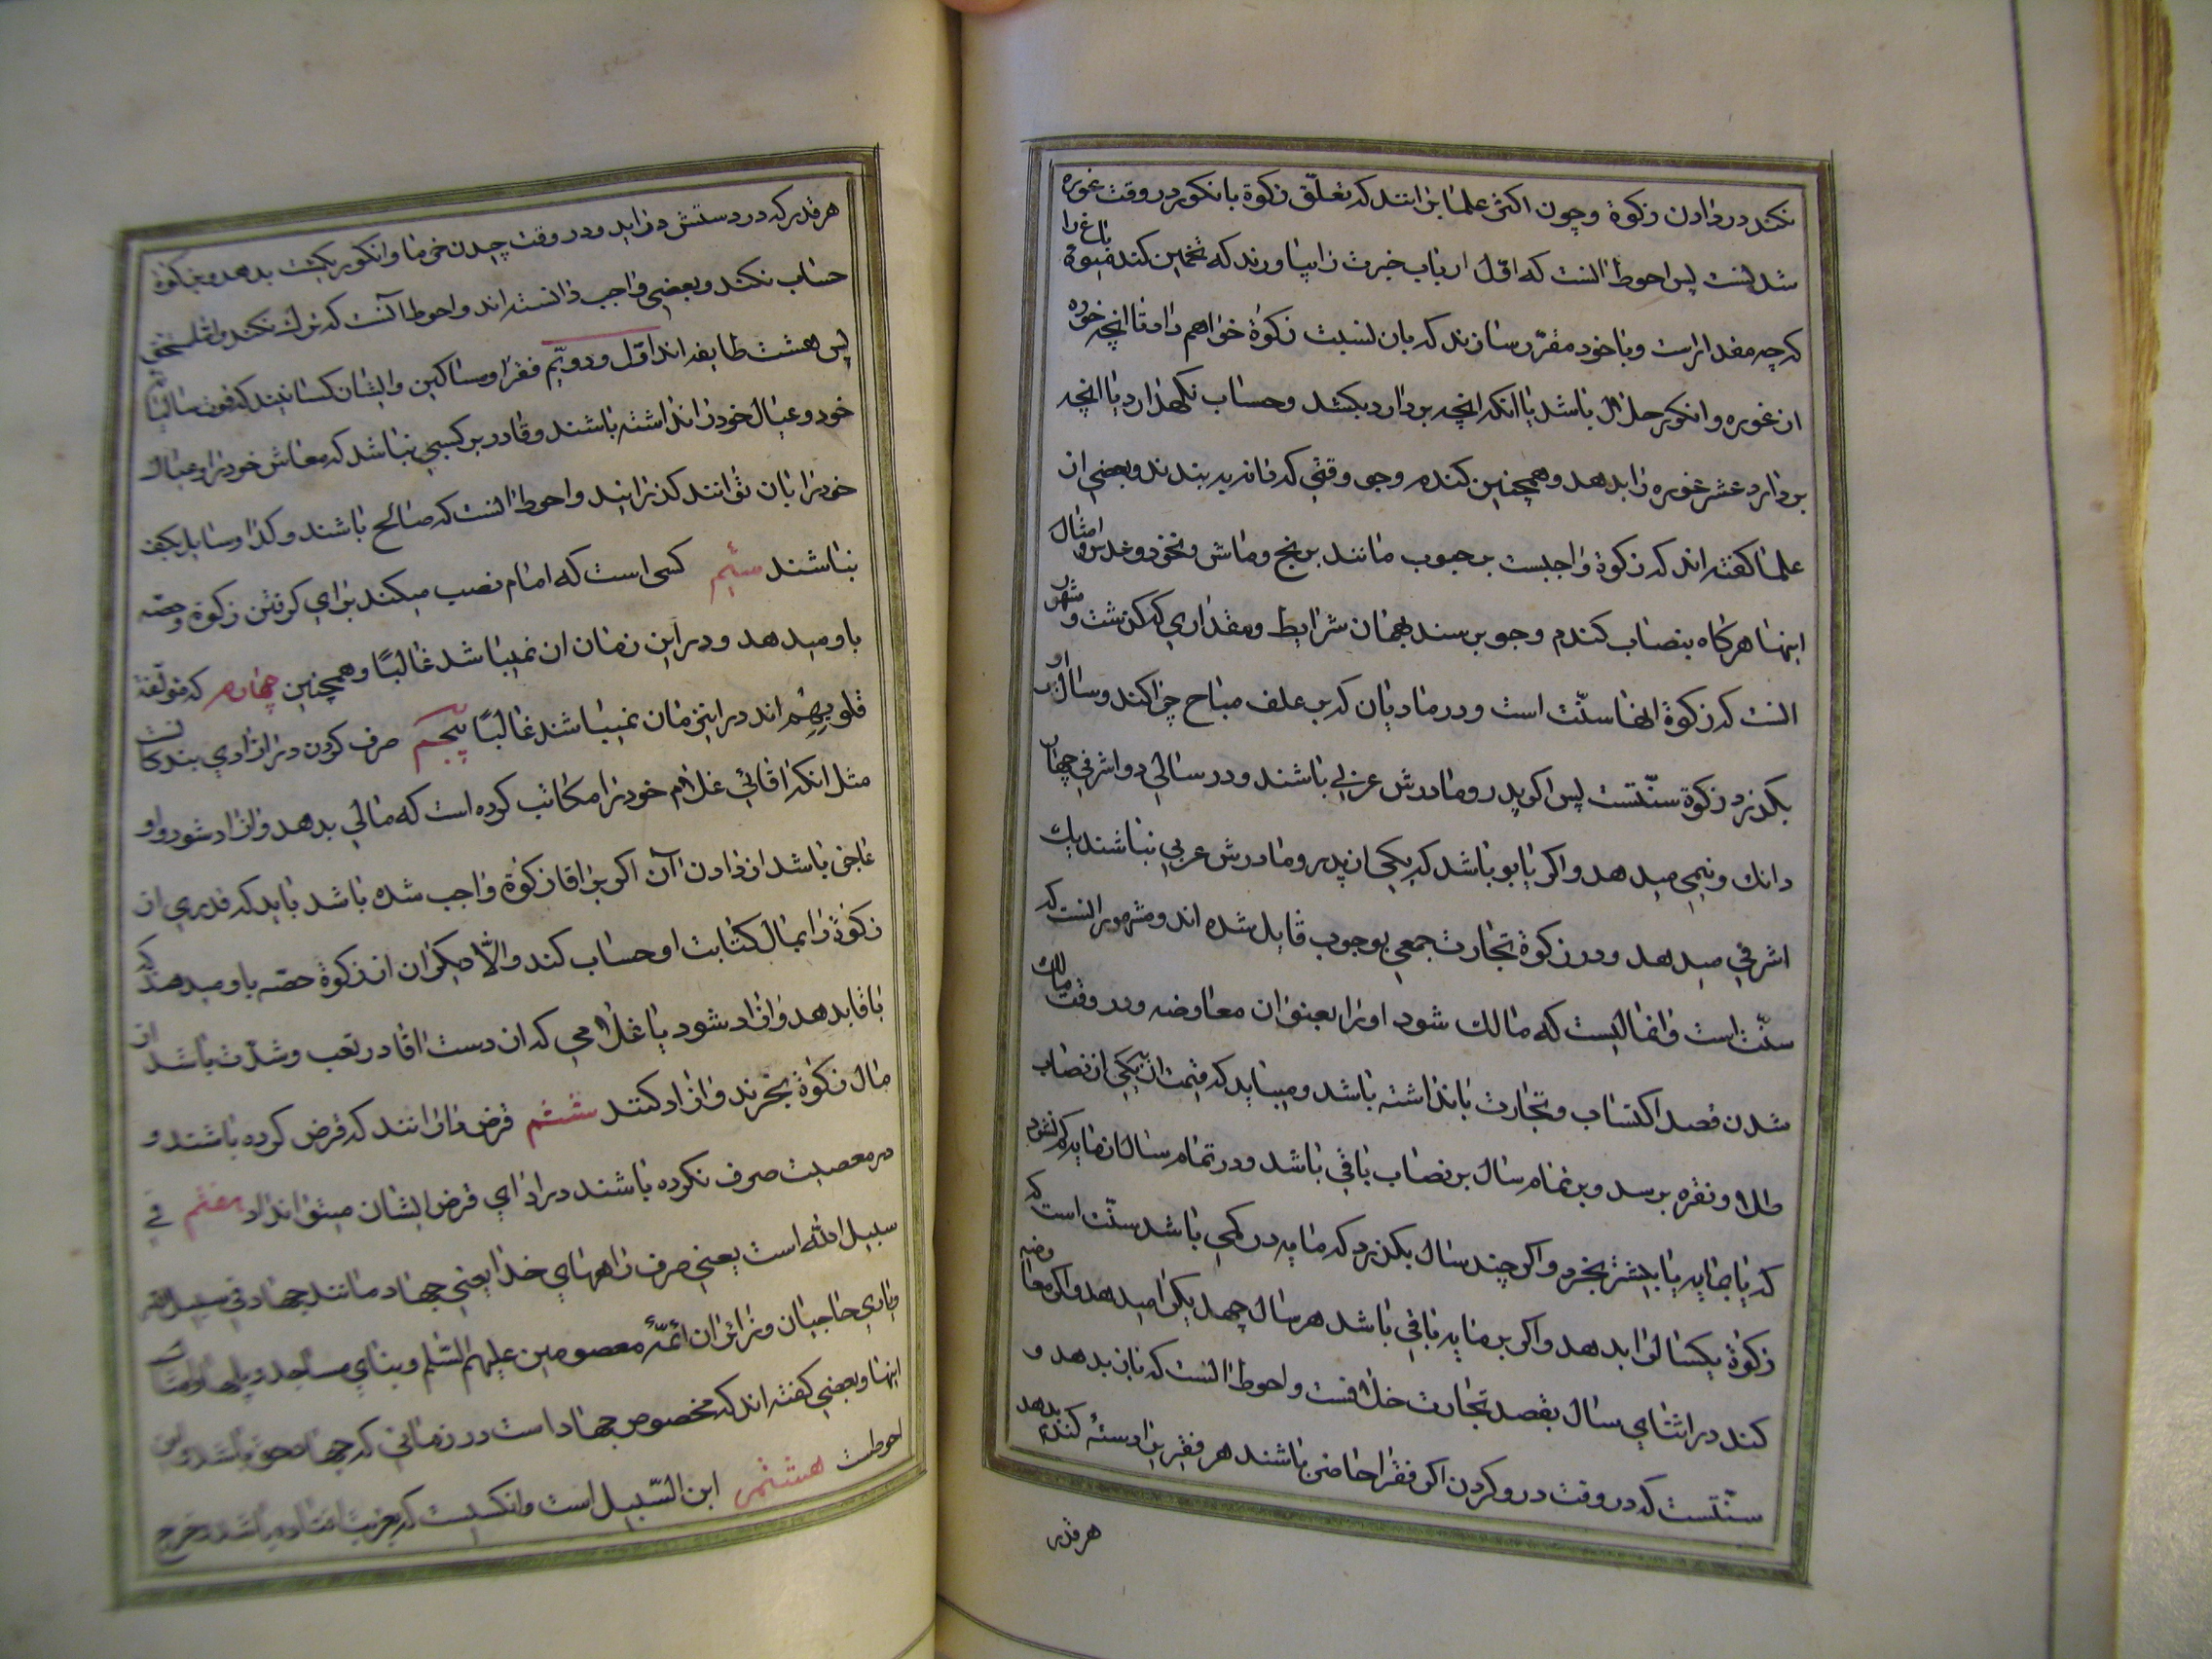 نکند در دادن زکوة و چون اکثر علما بر انند که تعلّق زکوة بانکور در وقت غوره
شدنست پس احوط انست که اوّل ارباب خبرت را بیاورند که تخمین کند میوهٔ باغ را
که چه مقدار است و با خود مقرّر سازند که بان نسبت زکوة خواهم داد تا انچه خورد
ان غوره و انکور حلال باشد یا انکه انچه بردارد بکشد و حساب نکهدارد یا انچه
بردارد عشر غوره را بدهد و همچنین کندم و جو وقتی که دانه به بندند و بعضی از
علما کفته اند که زکوة واجبست بر حبوب مانند برنج و ماش و نخود و عدس و امثال
اینها هرکاه بنصاب کندم و جو برسند بهمان شرایط و مقداری که کذشت و مشهور
انست که زکوة انها سنّت است و در مادیان که بر علف مباح چرا کند و سال بر او
بکذرد زکوة سنّتست پس اکر پدر و مادرش عربی باشند و در سالی دو اشرفی چهار
دانك و نیمی میدهد و اکر یابو باشد که یکی از پدر و مادرش عربی نباشند یك
اشرفی میدهد و در زکوة تجارت جمعی بوجوب قایل شده اند و مشهور انست که
سنّت است و ان مالیست که مالك شود او را بعنوان معاوضه و در وقت مالك
شدن قصد اکتساب و تجارت باند داشته باشد و میباید که قیمت ان بیکی از نصاب
طلا و نقره برسد و بر تمام سال بر نصاب باقی باشد و در تمام سال از مایه کم نشود
که یا بمایه یا بیشتر بخرد و اکر چند سال بکذرد که مایه در کمی باشد سنّت است که
زکوة یکساله را بدهد و اکر بر مایه باقی باشد هر سال چهل یکرا میدهد و اکر معاوضه
کند در اثنای سال بقصد تجارت خلافست و احوط انست که باز بدهد و
سنّتست که در وقت درو کردن اکر فقرا حاضر باشند هر فقیر را دستهٔ کندم بدهد
هر قدر
هر قدر که در دستش در اید و در وقت چیدن خرما و انکور یکمشت بدهد و بر زکوة
حساب نکند و بعضی واجب دانسته اند و احوط آنست که ترك نکند و امّا مستحق
پس هشت طایفه اند اوّل و دویّم فقرا و مساکین و ایشان کسانیند که قوت سالیانهٔ
خود و عیال خود را نداشته باشند و قادر بر کسبی نباشد که معاش خود را و عیال
خود را بان توانند کذرانید و احوط انست که صالح باشند و کدا و سایل بکف
نباشند سیّم کسی است که امام نصب میکند برای کرفتن زکوة و حصّه
باو میدهد و در این زمان ان نمیباشد غالبًا و همچنین چهارم که مؤلّفة
قلوبهم اند در اینزمان نمیباشند غالبًا پنجم صرف کردن در ازادی بندکانست
مثل انکه اقائی غلام خود را مکاتب کرده است که مالی بدهد و ازاد شود و او
عاجز باشد از دادن آن اکر بر اقا زکوة واجب شده باشد باید که قدری از
زکوة را بمال کتابت او حساب کند و الّا دیکران از زکوة حصّه باو میدهند که
باقا بدهد و ازاد شود یا غلامی که از دست اقا در تعب و شدّت باشد از
مال زکوة بخرند و ازاد کنند ششم قرض دارانند که قرض کرده باشند و
در معصیت صرف نکرده باشند در ادای قرض ایشان میتوان داد هفتم فی
سبیل الله است یعنی صرف راههای خدا یعنی جهاد مانند جهاد فی سبیل الله
و یاری حاجیان و زائران ائمّهٔ معصومین علیهم السّلم و بنای مساجد و پلها و امثال
اینها و بعضی کفته اند که مخصوص جهاد است در زمانی که جهاد حق باشد و این
احوطست هشتم ابن السّبیل است و انکسیست که بغربت افتاده باشد و خرج